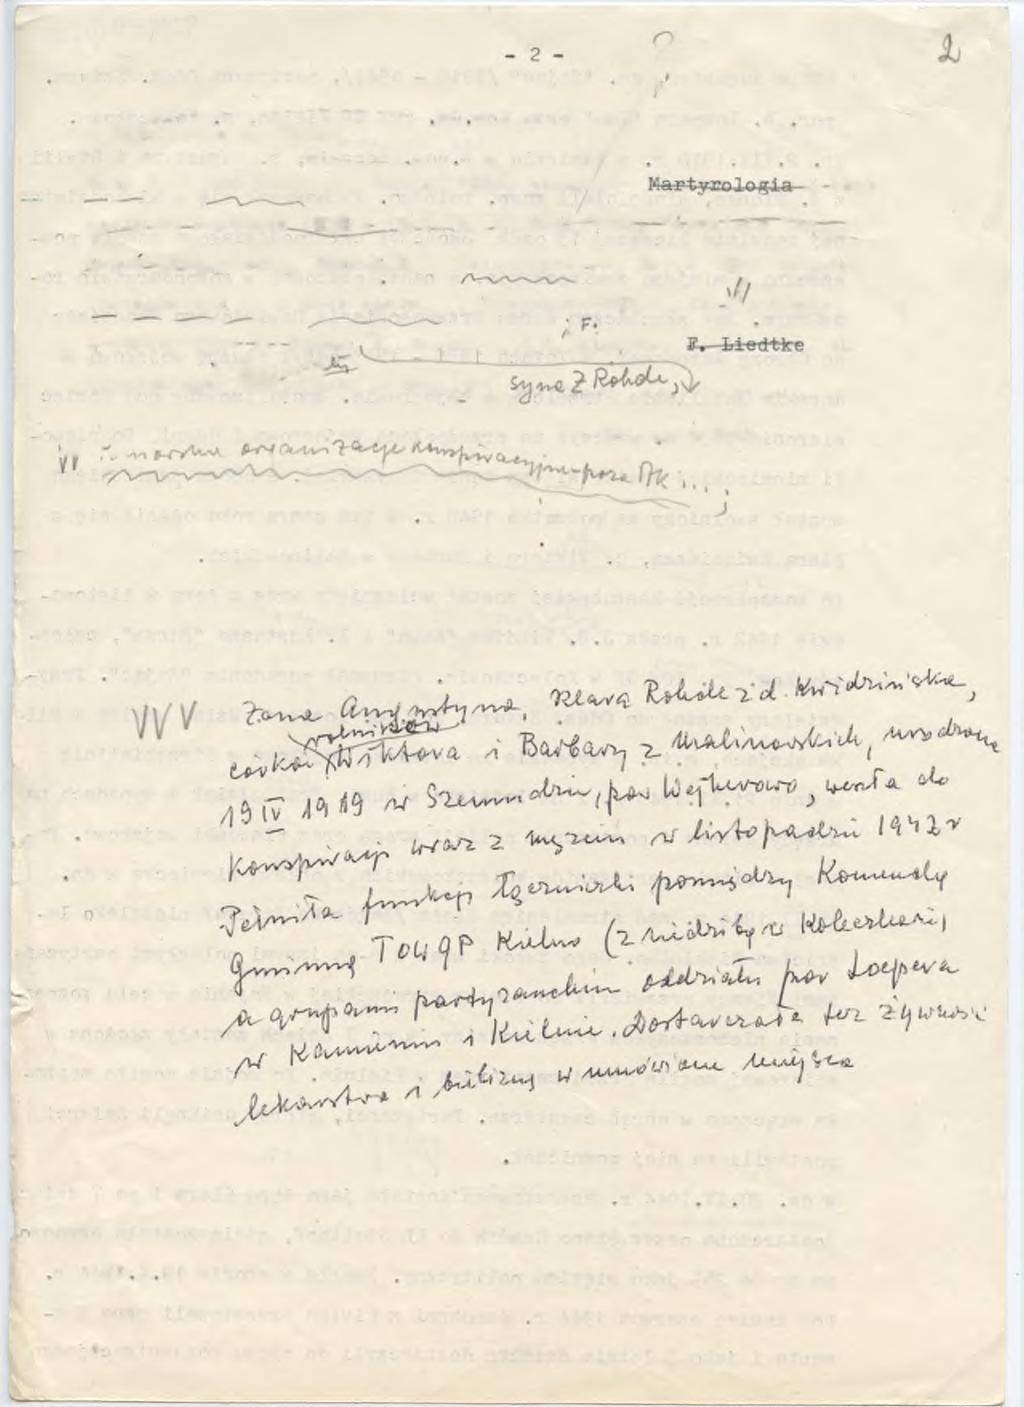 - 2 -
2
Martyrologia
F.
F. Liedtke
syna Z Rohde,
organizacje konspiracyjne poza AK ...;
VVV Żona Augustyna, Klara Rohde z d. Kwidzińska,
rolników
córka Wiktora i Barbary z Malinowskich, urodzona
19 IV 1919 w Szemudzie, pow Wejherowo, weszła do
Konspiracji wraz z mężem w listopadzie 1942 r
Pełniła funkcję łączniczki pomiędzy Komendą
Gminną TOW GP Kielno (z siedzibą w Koleczkowie)
a grupami partyzanckim oddziału por Loepera
w Kamieniu i Kielnie. Dostarczała też żywność
lekarstwa i bieliznę w umówione miejsca